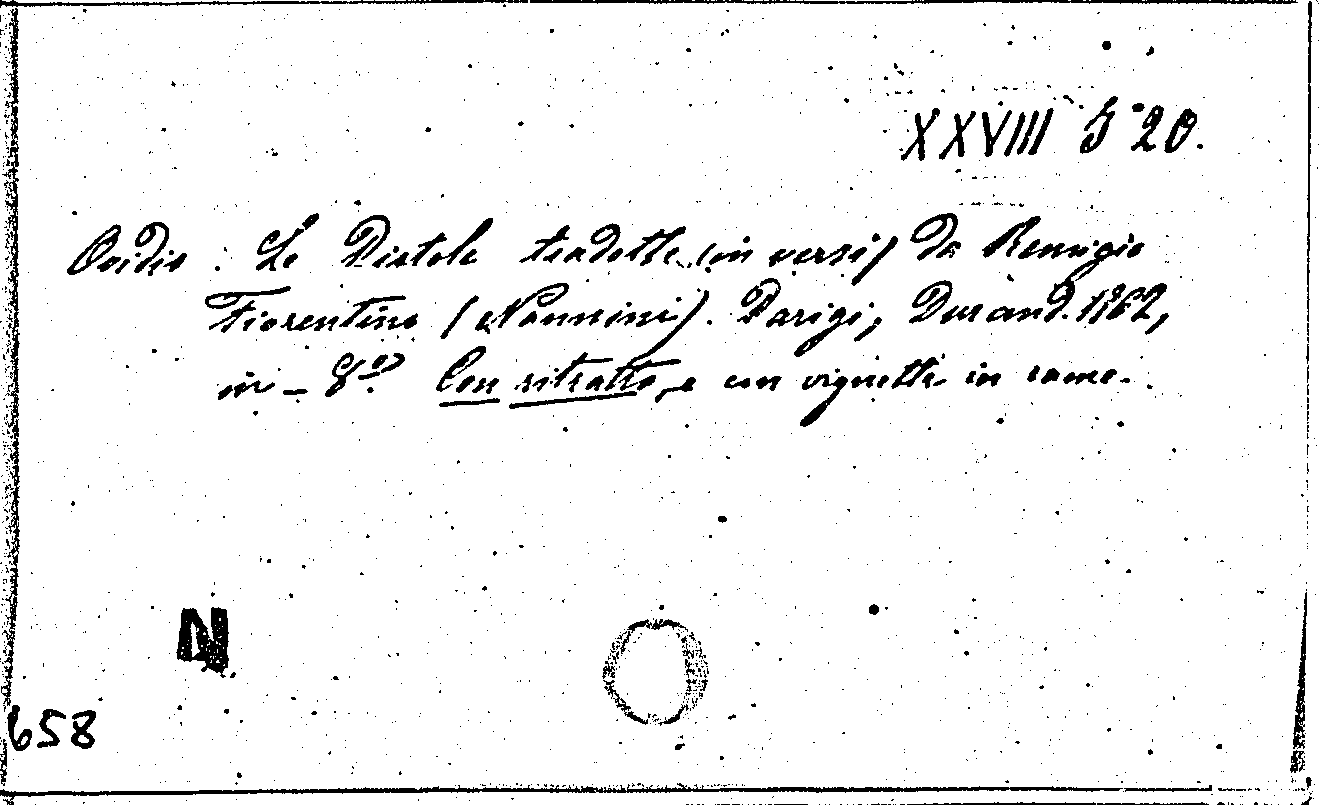 XXVIII G 20.
Ovidio. Le Pistole tradotte (in versi) da Remigio
Fiorentino (Nannini). Parigi, Durand. 1762,
in-8º. Con ritratto, e con vignette in rame.
N
658